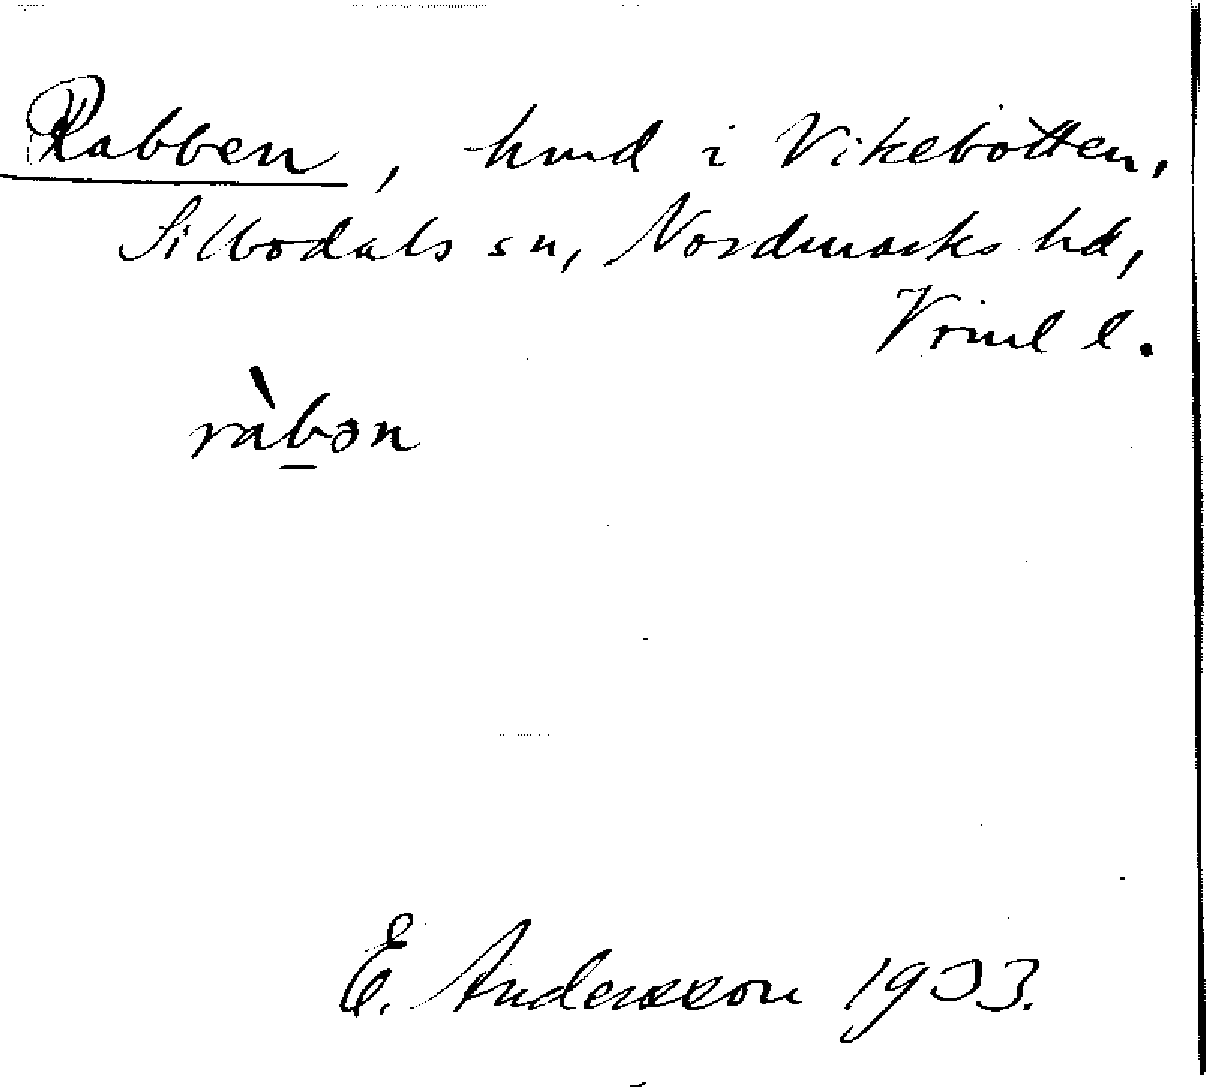 Rabben, hmd i Vikebotten,
Sillbodals sn, Nordmarks hd,
Vrml l.
ràbən
E. Andersson 1933.